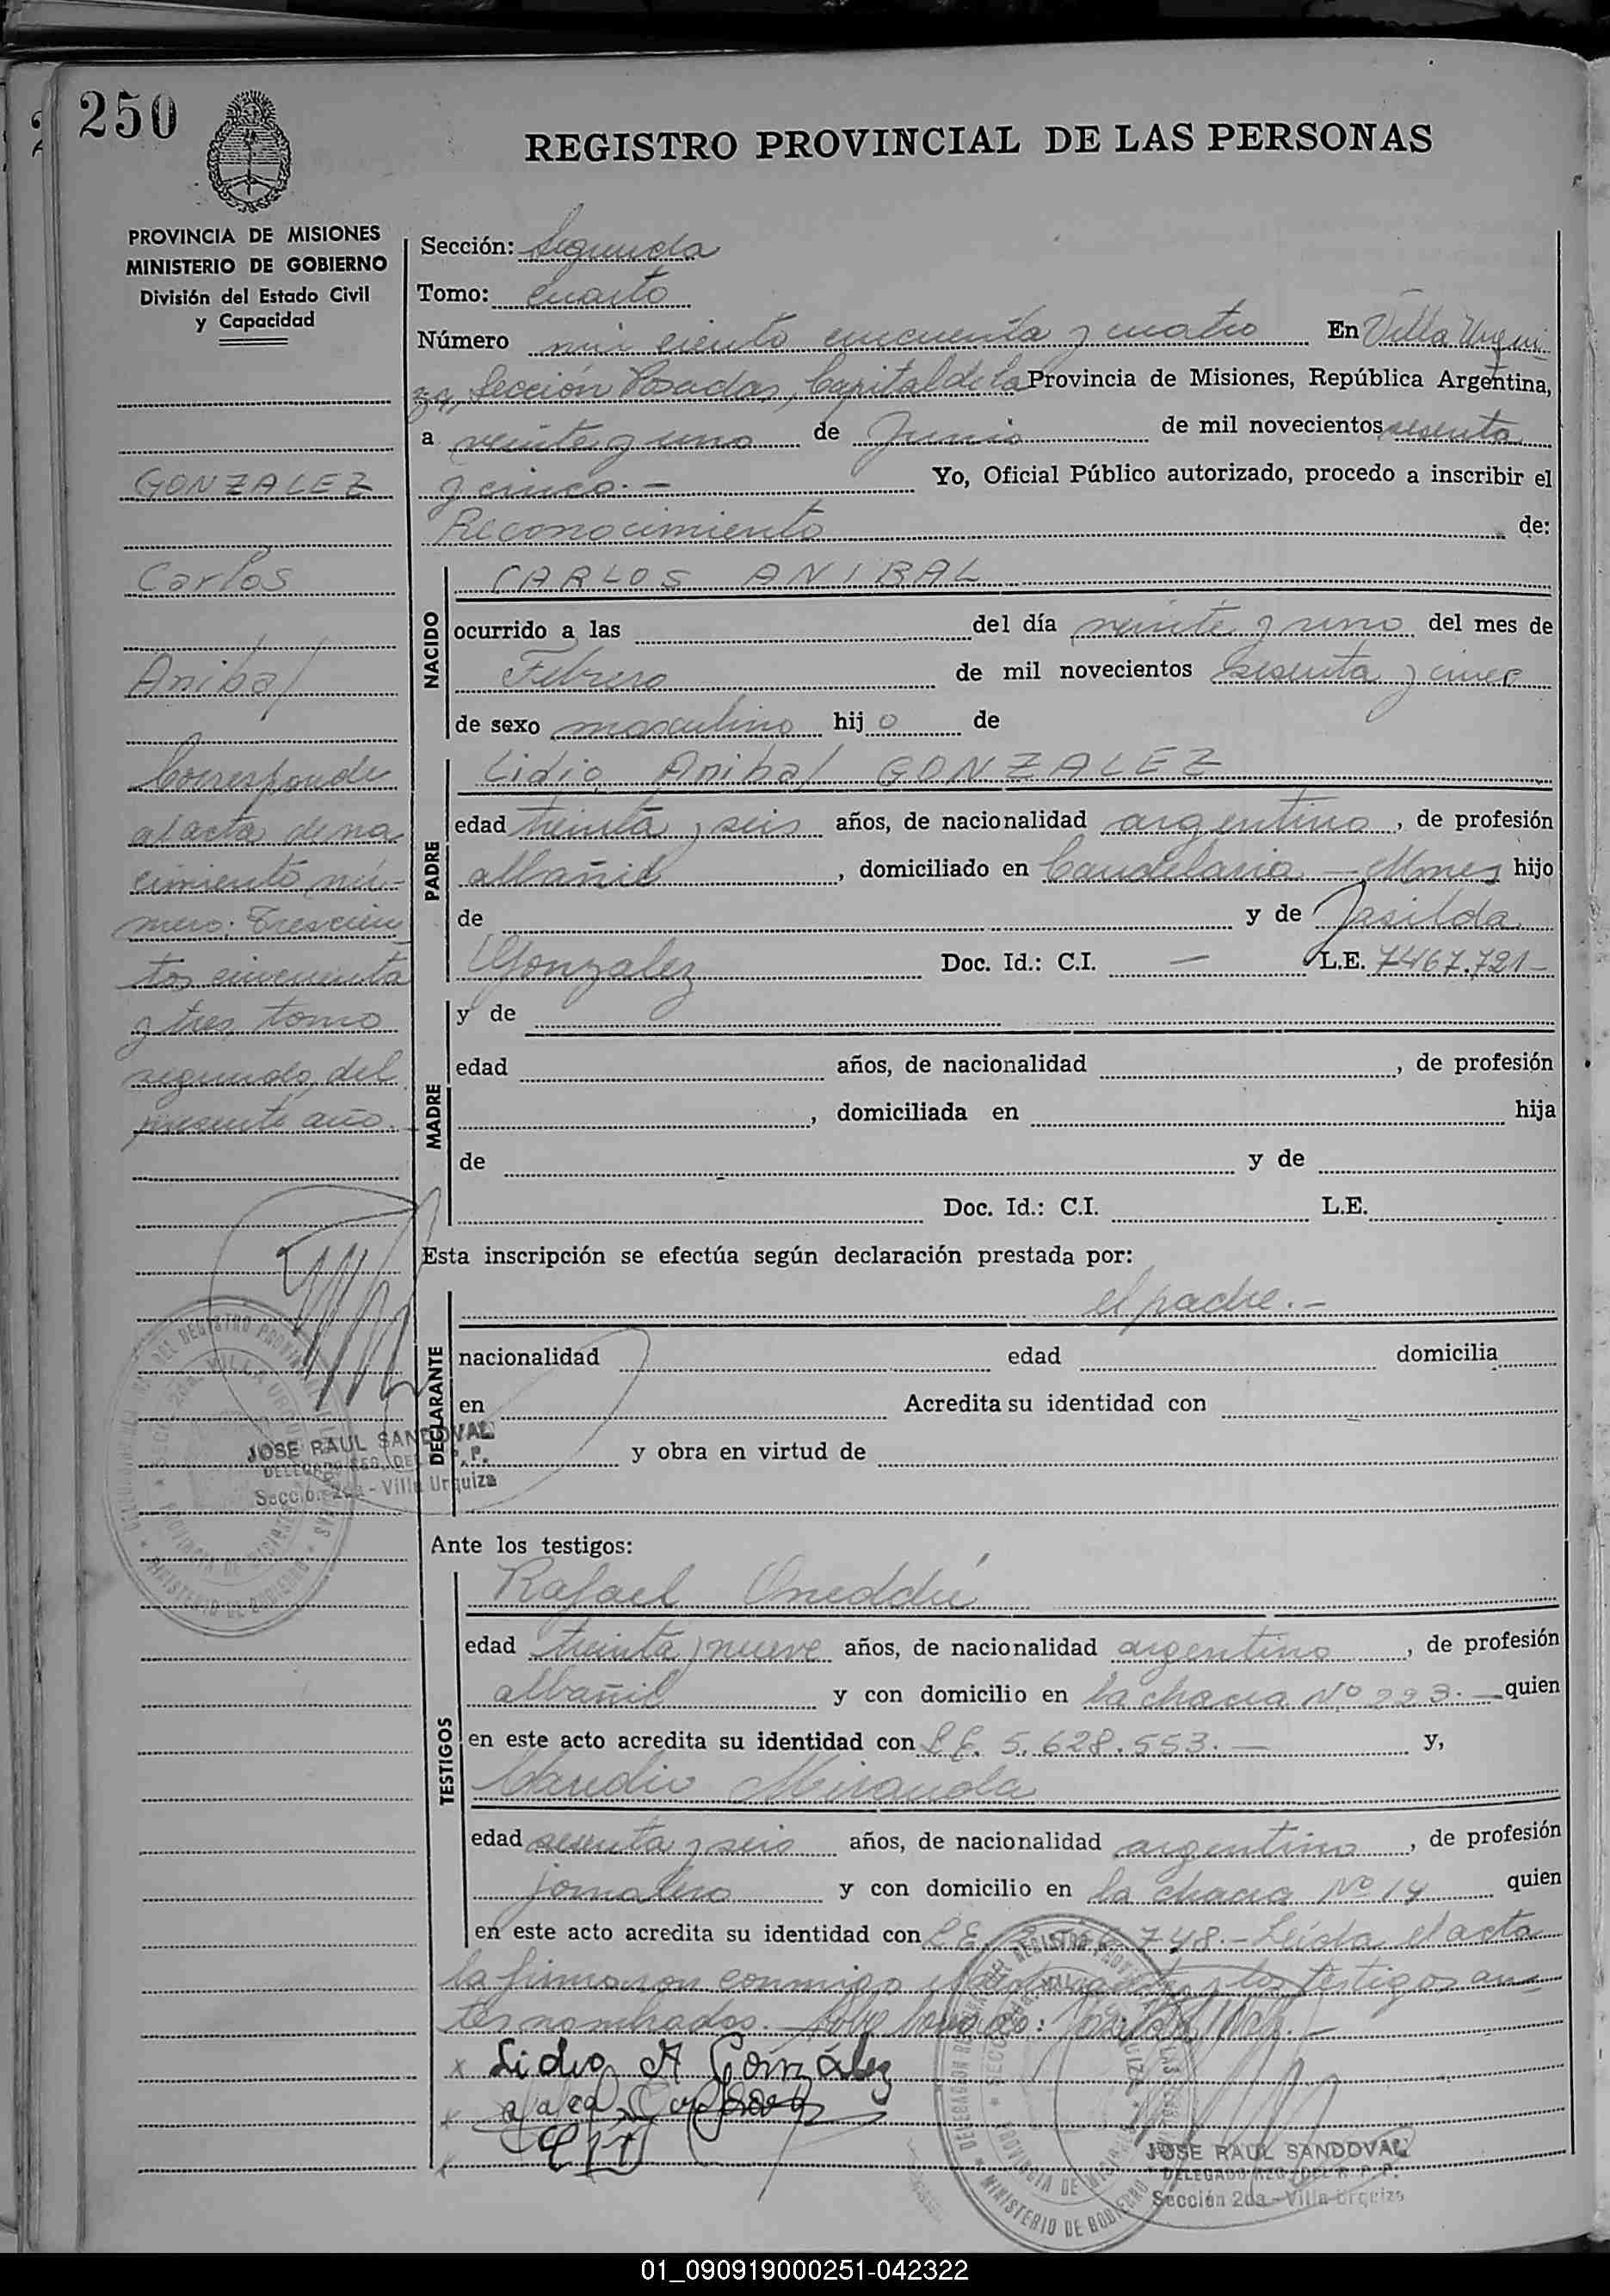 250
REGISTRO PROVINCIAL DE LAS PERSONAS
PROVINCIA DE MISIONES
MINISTERIO DE GOBIERNO
División del Estado Civil
y Capacidad
GONZALEZ
Carlos
Anibal
Corresponde
al acta de na
cimiento nú-
mero: Trescien
tos cincuenta
y tres, tomo
segundo, del
presente año.
Sección: Segunda
Tomo: Cuarto
Número mil ciento cincuenta y cuatro En Villa Urqui
za, Sección Posadas, Capital de la Provincia de Misiones, República Argentina,
a veinte y uno de Junio de mil novecientos sesenta
y cinco.- Yo, Oficial Público autorizado, procedo a inscribir el
Reconocimiento de:
NACIDO
CARLOS ANIBAL
ocurrido a las del día veinte y uno del mes de
Febrero de mil novecientos sesenta y cinco
de sexo masculino hijo de
PADRE
Lidio Anibal GONZALEZ
edad treinta y seis años, de nacionalidad argentino, de profesión
albañil, domiciliado en Candelaria - Mnes hijo
de y de Jasilda
Gonzalez Doc. Id.: C.I. — L.E. 7467.721-
MADRE
y de
edad años, de nacionalidad , de profesión
, domiciliada en hija
de y de
Doc. Id.: C.I. L.E.
Esta inscripción se efectúa según declaración prestada por:
DECLARANTE
el padre.-
nacionalidad edad domicilia
en Acredita su identidad con
y obra en virtud de
JOSE RAUL SANDOVAL
DELEGADO REG. DEL R. P. P.
Sección 2da - Villa Urquiza
Ante los testigos:
TESTIGOS
Rafael Oneddú
edad treinta y nueve años, de nacionalidad argentino, de profesión
albañil y con domicilio en la chacra Nº 223.- quien
en este acto acredita su identidad con L.E. 5.628.553.- y,
Claudio Miranda
edad sesenta y seis años, de nacionalidad argentino, de profesión
jornalero y con domicilio en la chacra Nº 14 quien
en este acto acredita su identidad con L.E. 748.- Leída el acta
la firmaron conmigo y los testigos an-
tes nombrados.
x Lidio A González
x
x
JOSE RAUL SANDOVAL
DELEGADO REG. DEL R. P. P.
Sección 2da - Villa Urquiza
01_090919000251-042322